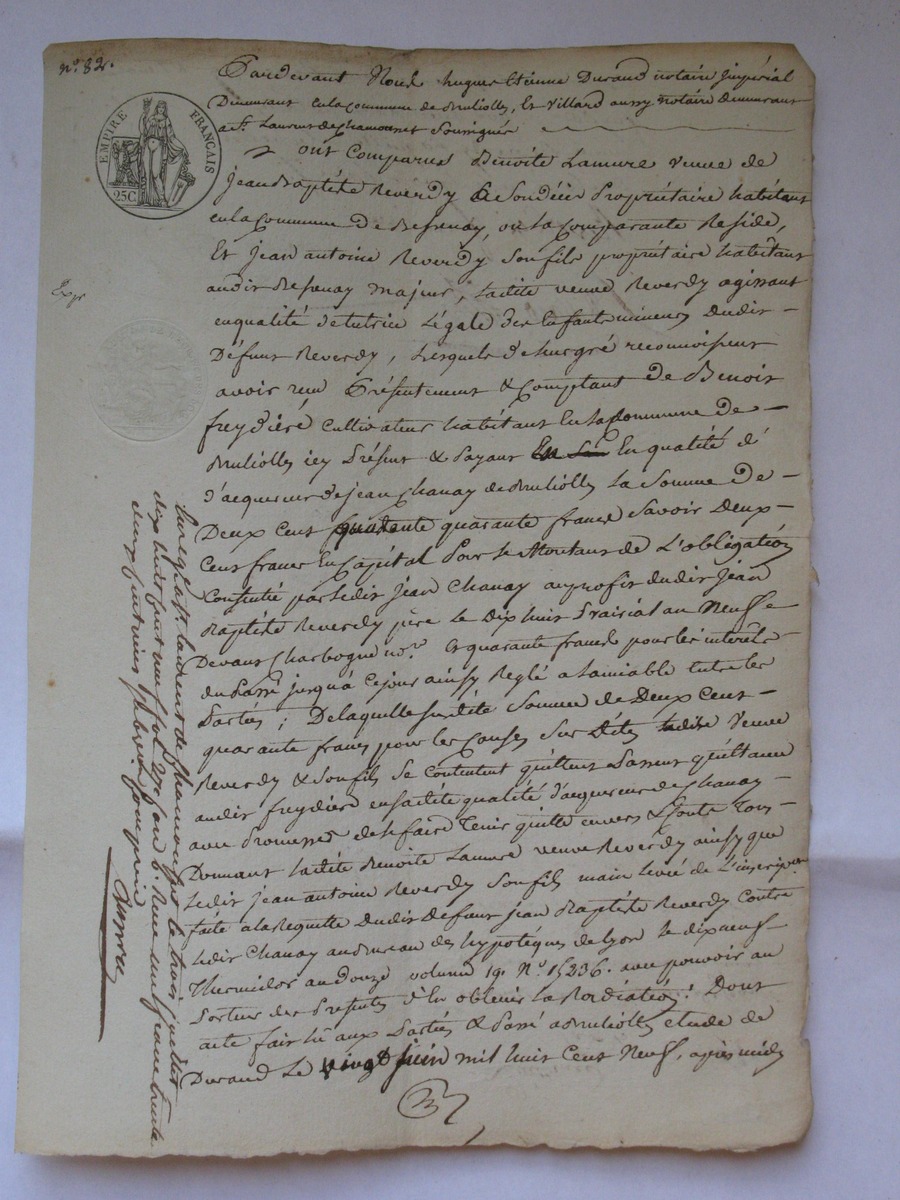 n.° 82.
EMPIRE FRANÇAIS
25C
Pardevant Nous hugues Etienne Durand notaire Impérial
Demeurant en la Commune de Brulliolles, Et Villard aussy notaire demeurant
a St. Laurent de Chamousset Soussignés
ont Comparus Benoite Lamure veuve de
Jean Baptiste Reverdy Propriétaire habitant
en la Commune de Bessenay, ou la Comparante Reside,
Et Jean antoine Reverdy Son fils propriétaire habitant
audit Bessenay majeur, ladite veuve Reverdy agissant
en qualité de tutrice Légale des Enfants mineurs Dudit
Défunt Reverdy, Lesquels de leur gré reconnoissent
avoir reçu Présentement & Comptant de Benoit
freydiére Cultivateur habitant En la Commune de
Brulliolles icy Présent & Payant En qualité d'
d'acquereur de jean Chanay de Brulliolles La Somme de
Deux Cent quarante francs Savoir Deux
Cent francs En Capital Pour le Montant de L'obligation
Consentie par ledit Jean Chanay au profit dudit Jean
Baptiste Reverdy pere le Dix huit Prairial an Neuf
Devant Charbogne nore. Et quarante francs pour les intérêts
du Passé jusqu'à Cejour ainssy Reglé a Lamiable Entre les
Parties; De laquelle susdite Somme de Deux Cent
quarante francs pour les Causes Sus Dites ladite Veuve
Reverdy & Son fils Se Contentent quittent Passent quittance
audit freydiere en sadite qualité d'acquereur de Chanay
avec Promesse de le faire Tenir quitte envers & Contre Tous
Donnant ladite Benoite Lamure veuve Reverdy ainssy que
ledit jean antoine Reverdy Son fils main levée de L'inscription
faite a la Requette Dudit Défunt jean Baptiste Reverdy Contre
ledit Chanay au Bureau des hypotéques de Lyon le dix neuf
Thermidor an Douze volume 19. N.° 15236. avec pouvoir au
Porteur des Presentes d'En obtenir la Radiation. Dont
acte fait lû aux Parties & Passé a Brulliolles etude de
Durand Le vingt juin mil huit Cent Neuf, après midy
Enregist. a St. Laurent de Chamousset le trois juillet
dix huit cent neuf fol. 27 Reçu un franc trente
deux centimes Subvention comprise